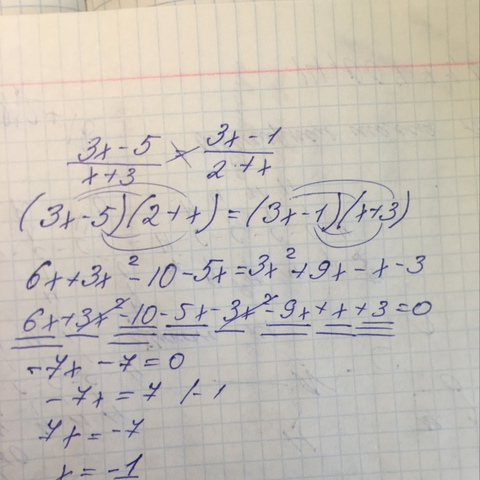 (3x-5)/(x+3) = (3x-1)/(2+x)
(3x-5)(2+x)=(3x-1)(x+3)
6x+3x²-10-5x=3x²+9x-x-3
6x+3x²-10-5x-3x²-9x+x+3=0
-7x-7=0
-7x=7 /-1
7x=-7
x=-1